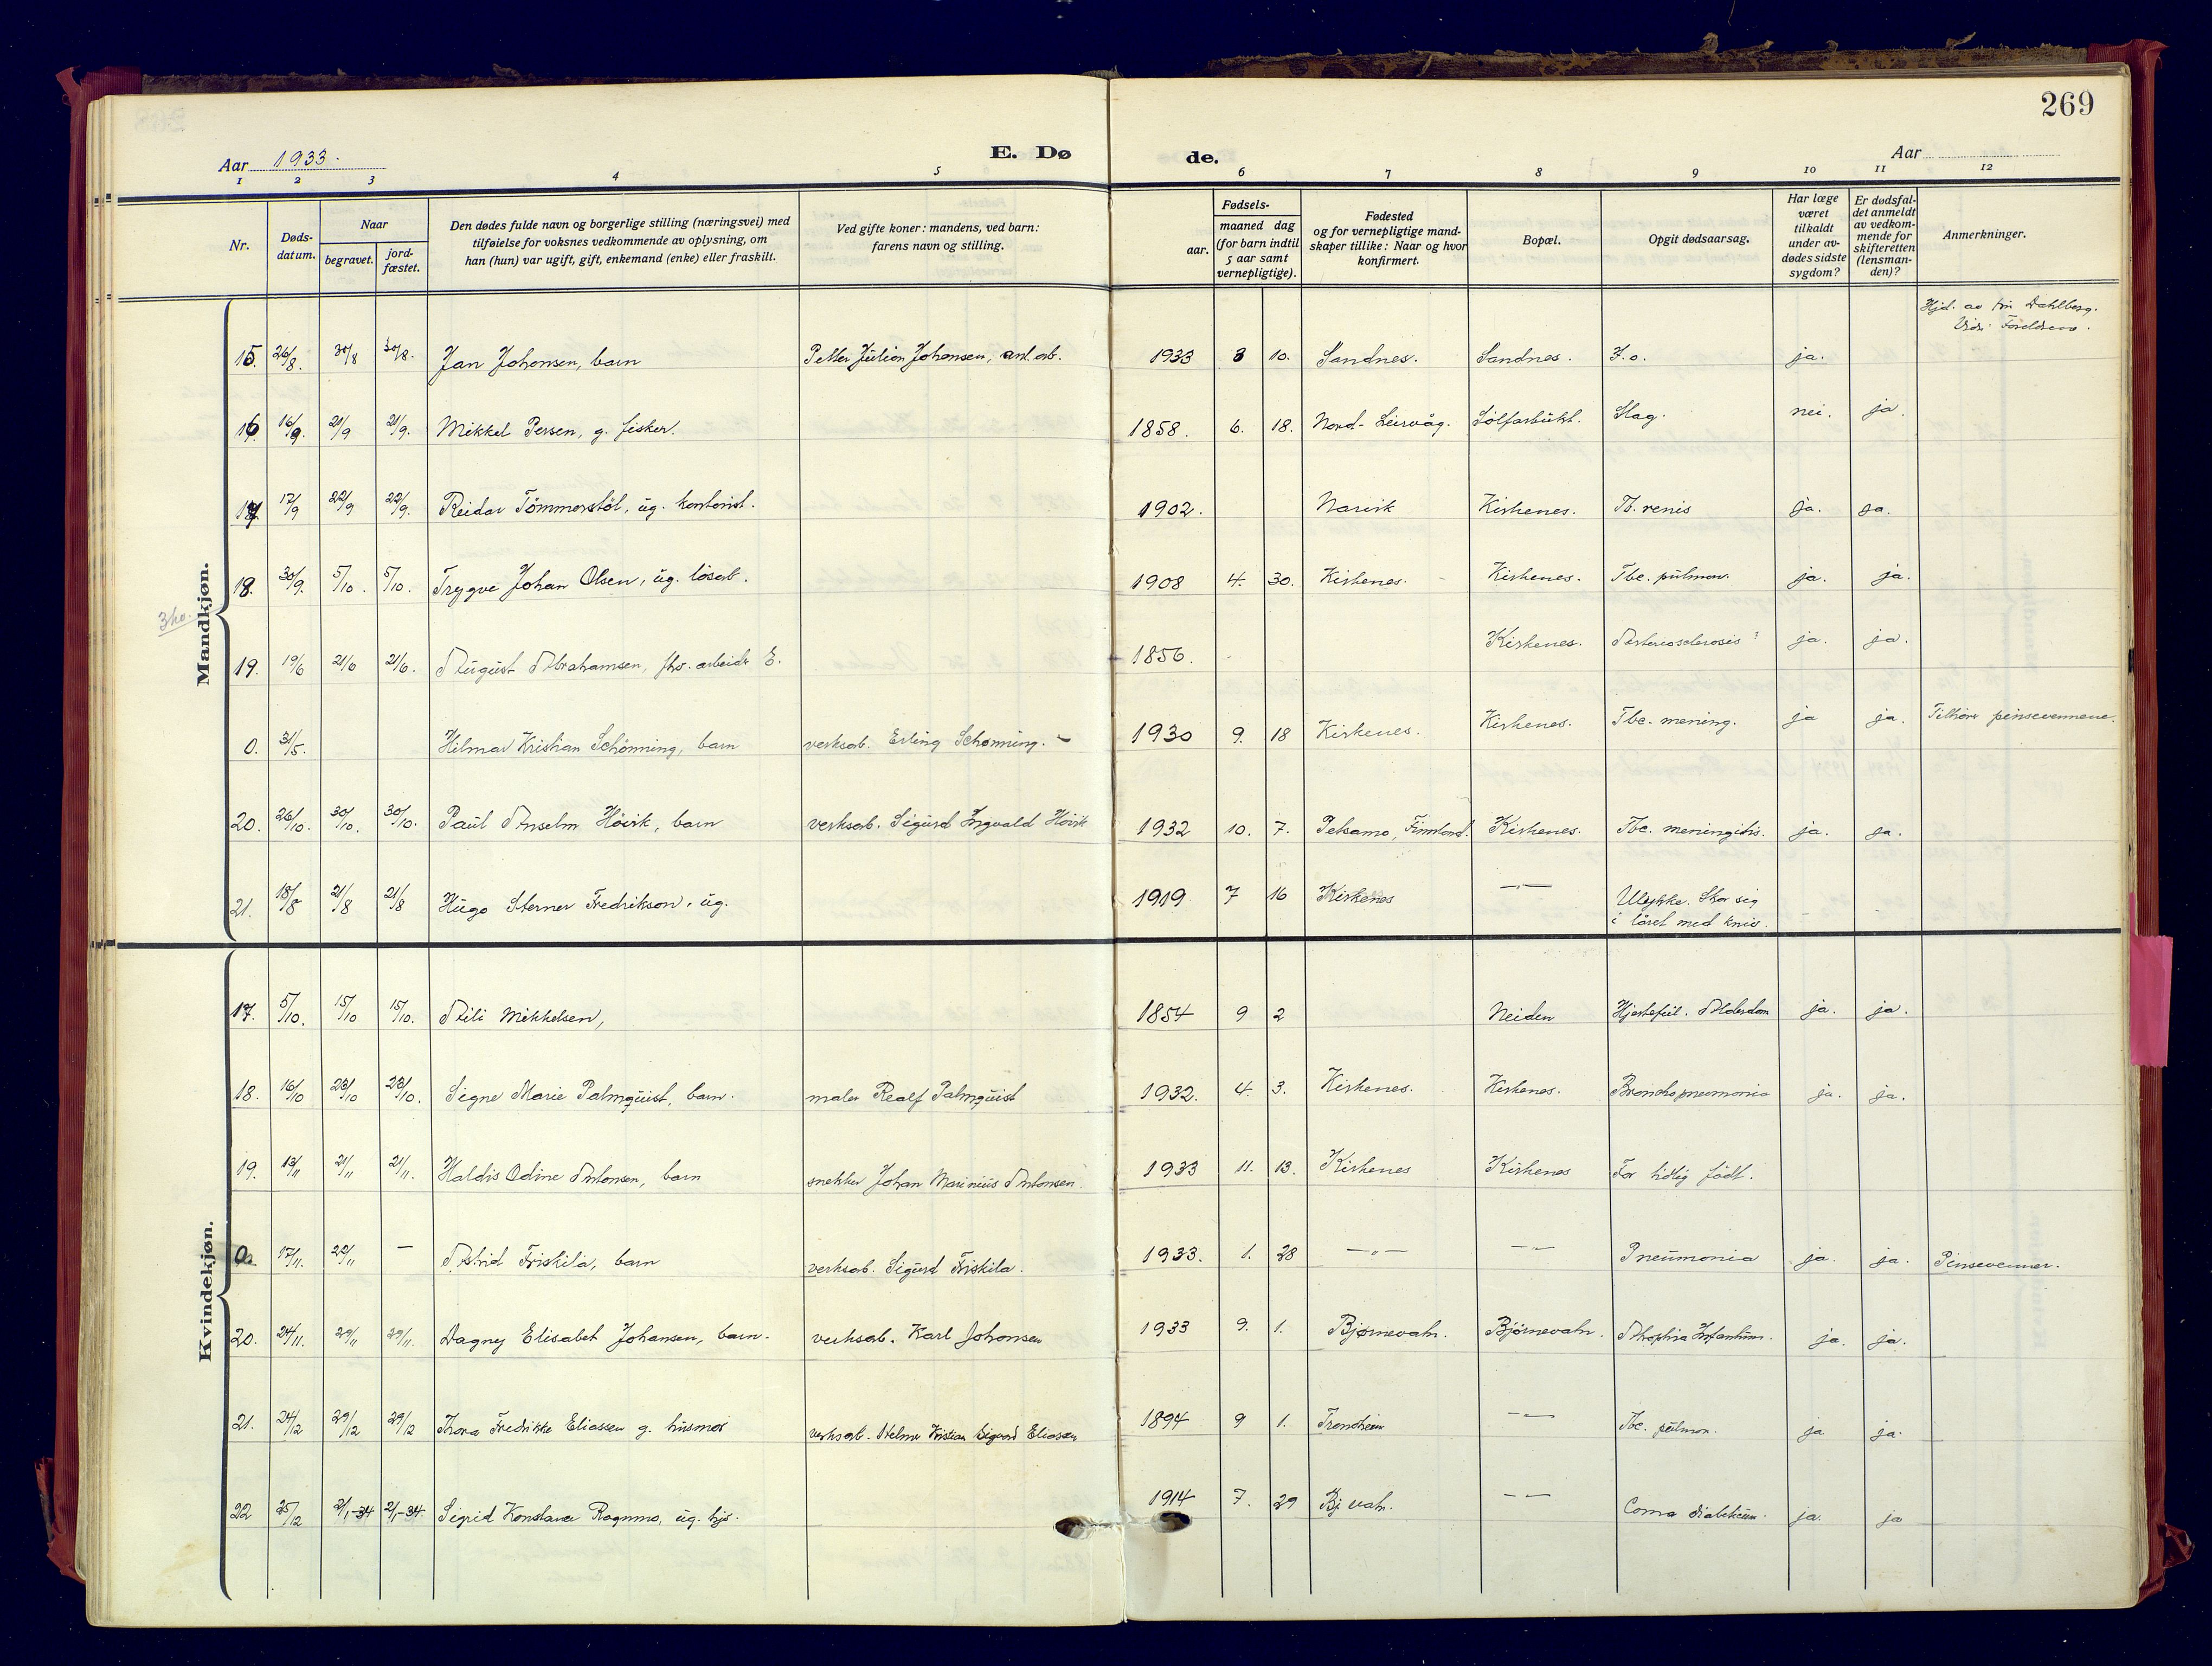 269
Aar 1933. E. Dø de. Aar
1 2 3 4 5 6 7 8 9 10 11 12
Nr. Døds-datum. Naar begravet. jord-fæstet. Den dødes fulde navn og borgerlige stilling (næringsvei) med tilføielse for voksnes vedkommende av oplysning, om han (hun) var ugift, gift, enkemand (enke) eller fraskilt. Ved gifte koner: mandens, ved barn: farens navn og stilling. Fødsels- aar. maaned dag (for barn indtil 5 aar samt vernepligtige). Fødested og for vernepligtige mand-skaper tillike: Naar og hvor konfirmert. Bopæl. Opgit dødsaarsag. Har læge været tilkaldt under av-dødes sidste sygdom? Er dødsfal-det anmeldt av vedkom-mende for skifteretten (lensman-den)? Anmerkninger.
Mandkjøn.
Hjd. av frk Dahlberg.
15. 26/8. 30/8 30/8. Jan Johansen, barn Petter Julian Johansen, anl. arb. 1933 8 10. Sandnes. Sandnes. ja.
16 16/9. 21/9 21/9. Mikkel Persen, g. fisker. 1858. 6. 18. Nord-Leirvåg. Sølfarbukt. Slag. nei. ja.
17 17/9 22/9 22/9. Reidar Tömmerstöl, ug. kontorist. 1902. Narvik Kirkenes. Tb. renis ja. ja.
18. 30/9. 5/10. 5/10. Trygve Johan Olsen, ug. løsarb. 1908 4. 30. Kirkenes. Kirkenes. Tbc. pulmon. ja. ja.
19. 19/6 21/6 21/6. August Abrahamsen, fhv. arbeider E. 1856. Kirkenes. Arteriosclerosis? ja. ja.
0. 31/5. Hilmar Kristian Schönning, barn verksarb. Erling Schønning. 1930 9. 18 Kirkenes. Kirkenes. Tbc. mening. ja ja. Tilhører pinsevennene.
20. 26/10. 30/10. 30/10. Paul Anselm Höivik, barn verksarb. Sigurd Ingvald Höivik 1932 10. 7. Petsamo, Finnland. Kirkenes. Tbc. meningitis. ja. ja.
21. 18/8 21/8 21/8 Hugo Sterner Fredrikson, ug. 1919 7 16 Kirkenes —"— Ulykke. Skar sig
i låret med kniv.
Kvindekjøn.
17. 5/10. 15/10 15/10. Aili Mikkelsen, 1854 9 2 Neiden Hjertefeil. Alderdom ja. ja.
18. 16/10 23/10 23/10. Signe Marie Palmquist, barn. maler Realf Palmquist 1932. 4. 3. Kirkenes. Kirkenes. Bronchopneumonia ja. ja.
19. 13/11 21/11 21/11. Haldis Odine Antonsen, barn snekker Johan Marinius Antonsen. 1933 11. 13. Kirkenes Kirkenes For tidlig født.
0. 17/11. 22/11 — Astrid Friskila, barn verksarb. Sigurd Friskila. 1933. 1. 28 —"— —"— Pneumonia ja. ja. Pinsevenner.
20. 24/11. 29/11 29/11. Dagny Elisabet Johansen, barn. verksarb. Karl Johansen 1933 9. 1. Bjørnevatn. Bjørnevatn. Athophia Infantium. ja. ja.
21. 24/12 29/12 29/12 Thora Fredrikke Eliassen g. husmor verksarb. Helmer Kristian Sigvard Eliassen 1894 9 1. Trondheim —"— Tbc. pulmon. ja ja.
22 25/12 2/1-34 2/1-34. Sigrid Konstanse Ragnmo, ug. hjs. 1914 7. 29 Bj.vatn. —"— Coma diabeticum. ja. ja